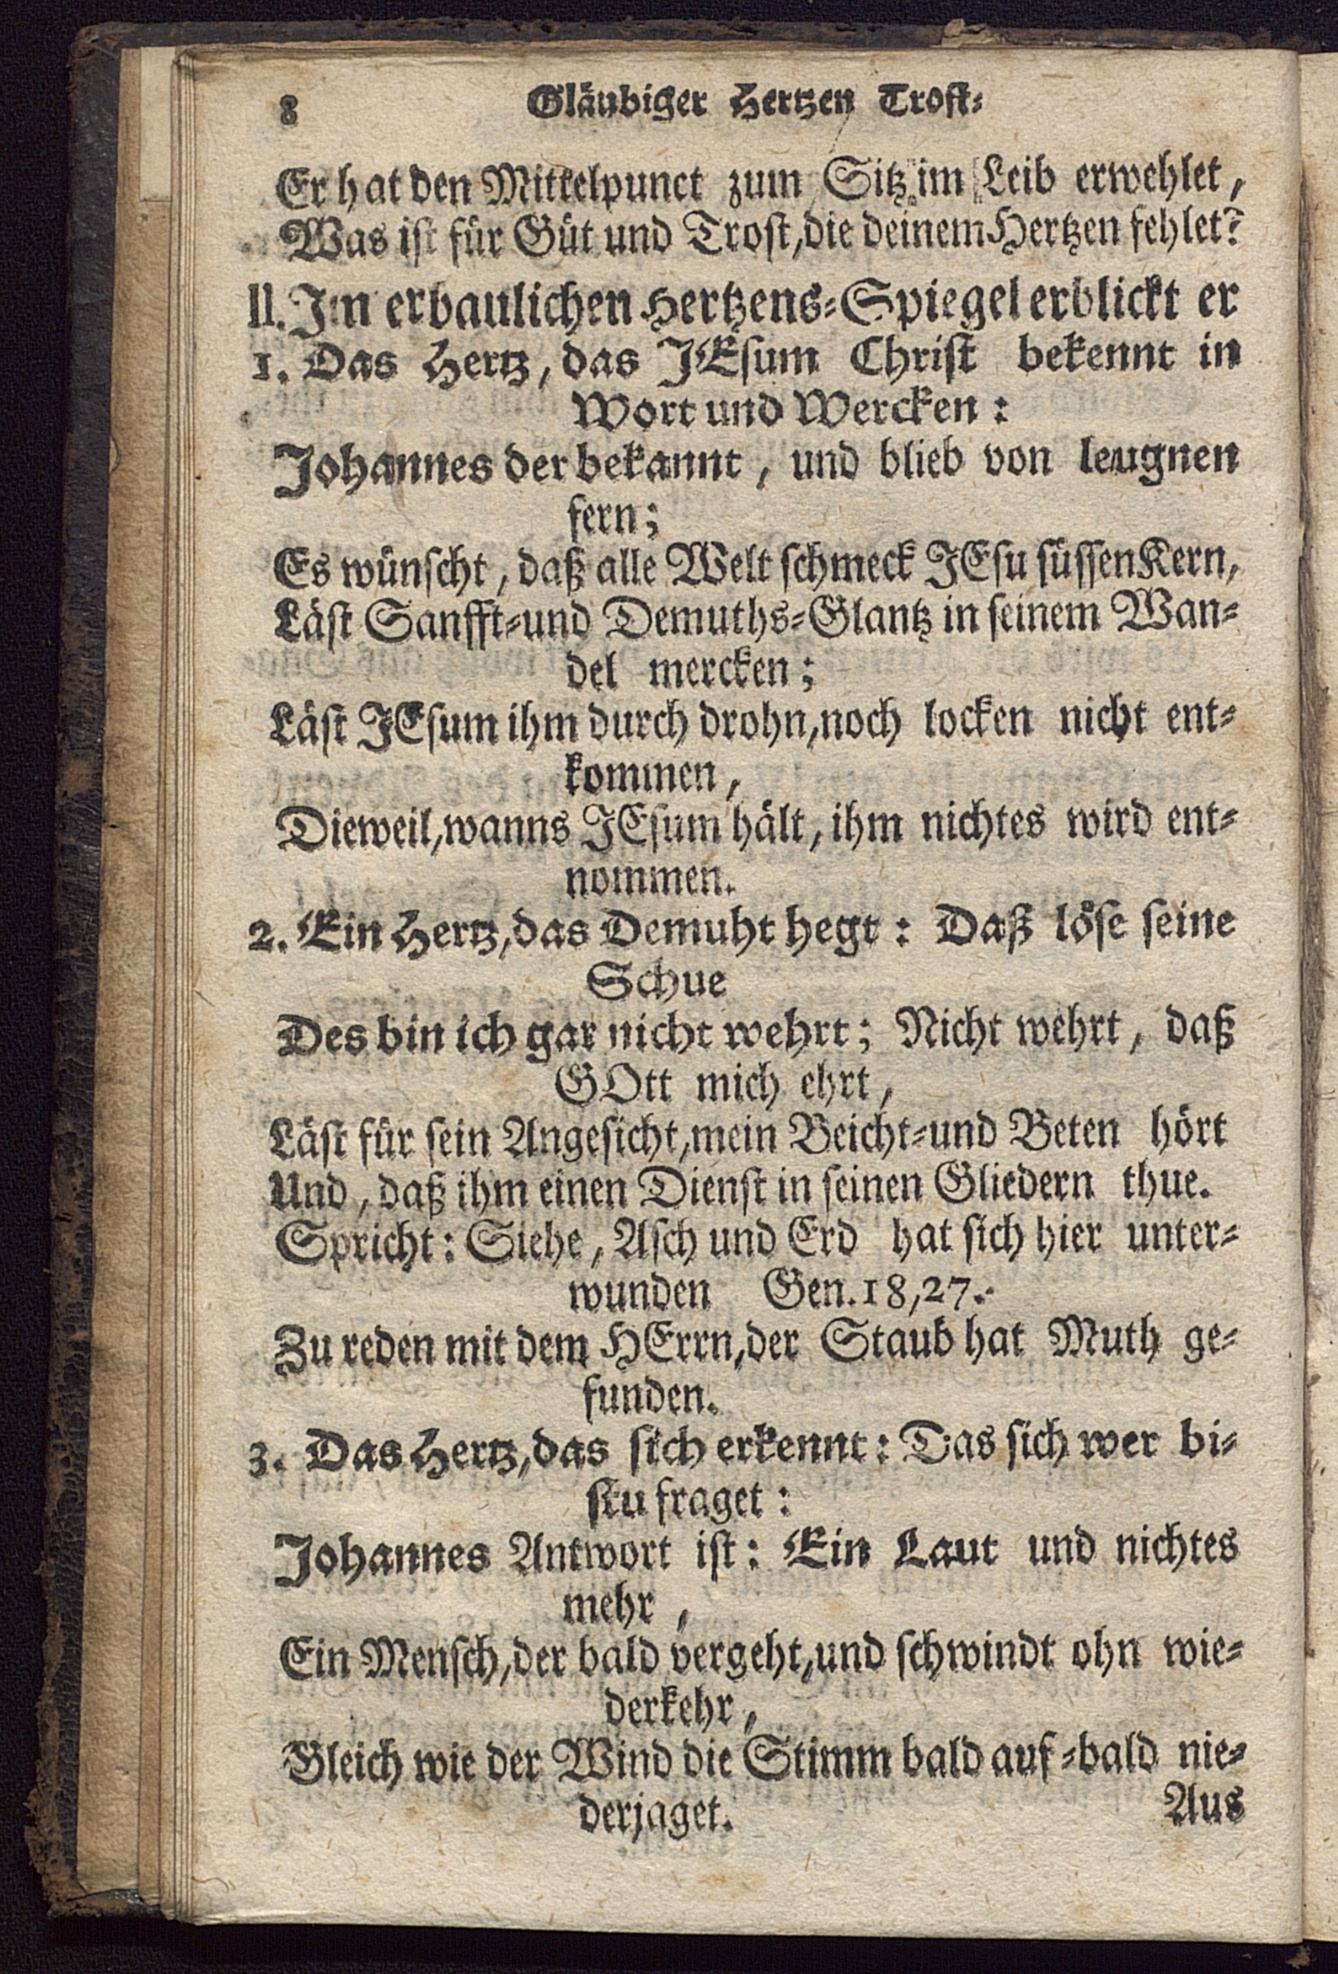 8 Gläubiger Hertzen Trost-
Er hat den Mittelpunct zum Sitz im Leib erwehlet,
Was ist für Güt und Trost, die deinem Hertzen fehlet?
II. Im erbaulichen Hertzens-Spiegel erblickt er
1. Das Hertz, das JEsum Christ bekennt in
Wort und Wercken:
Johannes der bekannt, und blieb von leugnen
fern;
Es wünscht, daß alle Welt schmeck JEsu süssen Kern,
Läst Sanfft-und Demuths-Glantz in seinem Wan-
del mercken;
Läst JEsum ihm durch drohn, noch locken nicht ent-
kommen,
Dieweil, wanns JEsum hält, ihm nichtes wird ent-
nommen.
2. Ein Hertz, das Demuht hegt: Daß löse seine
Schue
Des bin ich gar nicht wehrt; Nicht wehrt, daß
GOtt mich ehrt,
Läst für sein Angesicht, mein Beicht-und Beten hört
Und, daß ihm einen Dienst in seinen Gliedern thue.
Spricht: Siehe, Asch und Erd hat sich hier unter-
wunden Gen. 18, 27.
Zu reden mit dem HErrn, der Staub hat Muth ge-
funden.
3. Das Hertz, das sich erkennt: Das sich wer bi-
stu fraget:
Johannes Antwort ist: Ein Laut und nichtes
mehr,
Ein Mensch, der bald vergeht, und schwindt ohn wie-
derkehr,
Gleich wie der Wind die Stimm bald auf-bald nie-
derjaget.
Aus